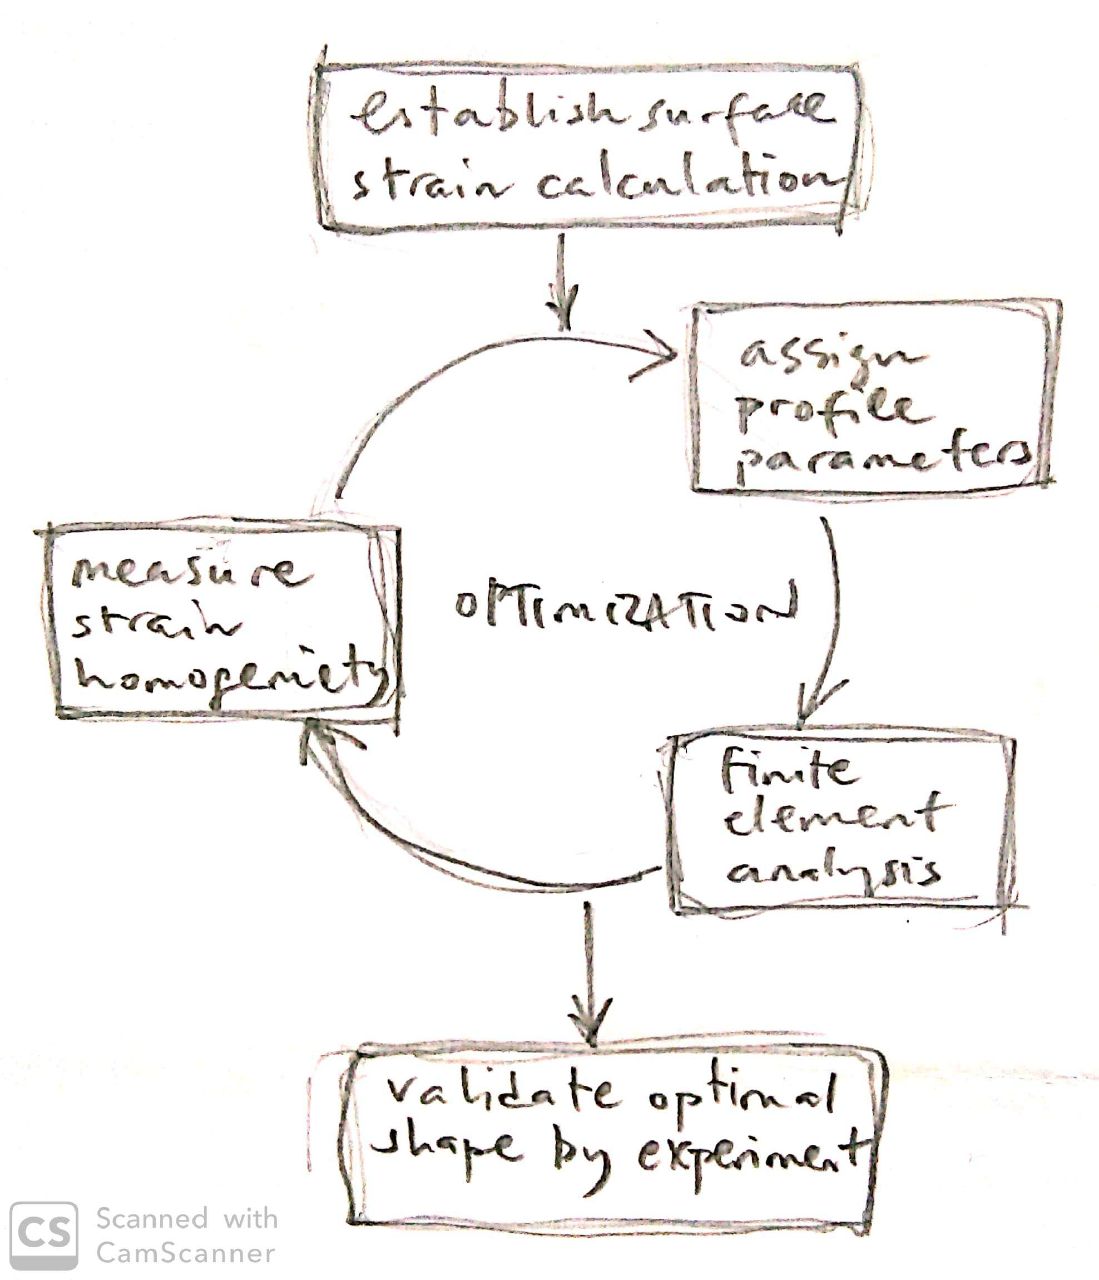 establish surface
strain calculation
assign
profile
parameters
measure
strain
homogeniety
OPTIMIZATION
finite
element
analysis
validate optimal
shape by experiment
CS
Scanned with
CamScanner